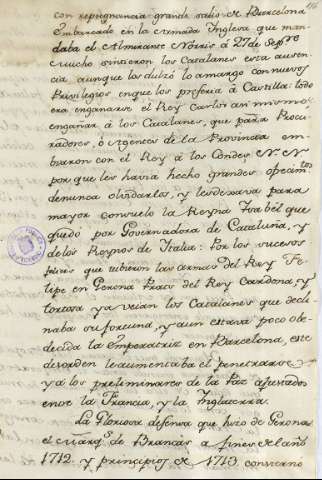 con repugnancia grande salió de Barcelona
Embarcado en la Armada Inglesa que man
daba el Almirante Norris á 27 de Sepbre
Mucho sintieron los Catalanes esta ausen
cia aunque las dulzó lo amargo con nuevos
Privilegios en que los preferia á Castilla: todo
era engañarse el Rey Carlos asi mismo, y
engañar á los Catalanes, que para Procu
radores, ó agentes de la Provincia em
biaron con el Rey á los Condes N. N
por que les havia hecho grandes ofrecim.tos
de nunca olvidarlos, y les dexava para
mayor consuelo la Reyna Isabél que
quedó por Governadora de Cataluña, y
de los Reynos de Italia: Por los sucesos
felices que tubieron las armas del Rey Fe
lipe en Gerona Prats del Rey Cardona, y
tortosa ya veían los Catalanes que decli
naba su fortuna, y aun estava poco obe
decida la Emperatriz en Barcelona, este
desorden le aumentaba el penetrarse
ya los preliminares de la Paz ajustados
entre la Francia, y la Inglaterra.
La Gloriosa defensa que hizo de Gerona
el Marqs. de Brancas a fines del año
1712. y principios de 1713